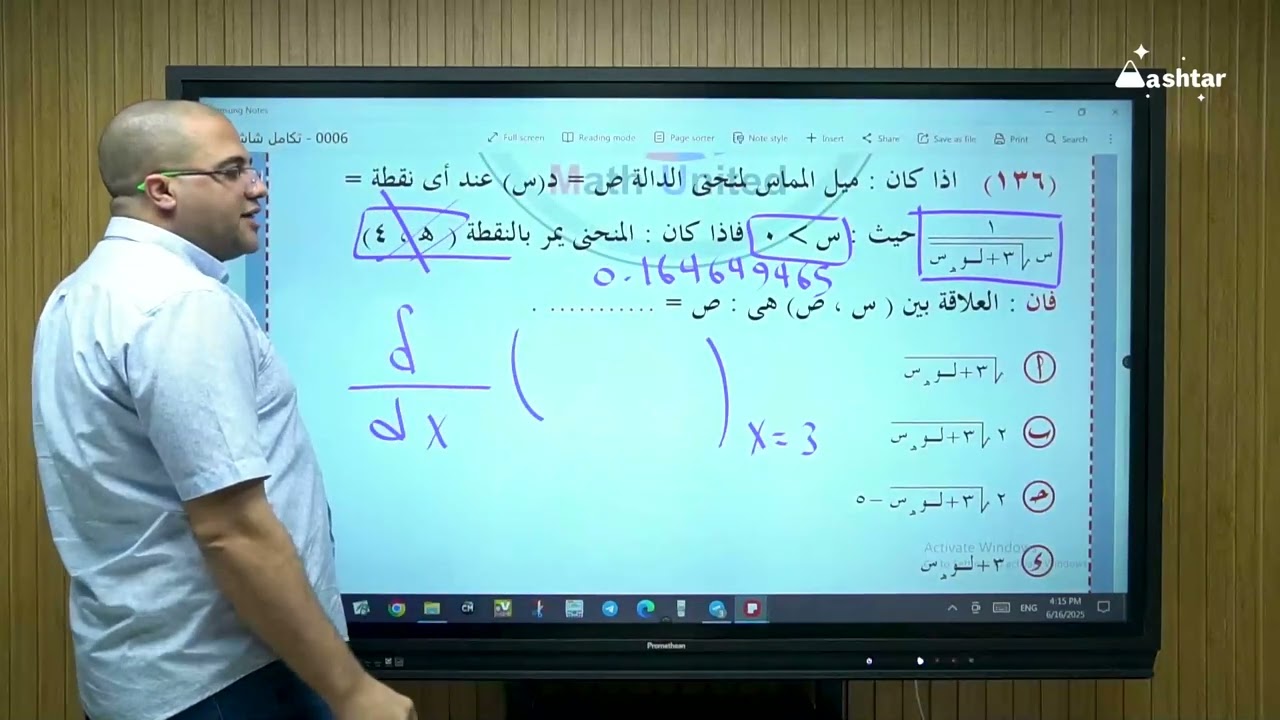 ashtar
Samsung Notes
0006 - تكامل شاش
Full screen Reading mode Page sorter Note style Insert Share Save as file Print Search
Math United
(١٣٦) اذا كان : ميل المماس لمنحنى الدالة ص = د(س) عند أى نقطة =
١ / س √(٣+لـوهـ س) حيث : س > ٠ فاذا كان : المنحنى يمر بالنقطة ( هـ ، ٤ )
0.164649465
فان : العلاقة بين ( س ، ص) هى : ص = ........... .
أ √(٣+لـوهـ س)
ب ٢ √(٣+لـوهـ س)
حـ ٢ √(٣+لـوهـ س) – ٥
ء ٣+لـوهـ س
d/dx ( ) x=3
Activate Windows
ENG
4:15 PM
6/16/2025
Promethean